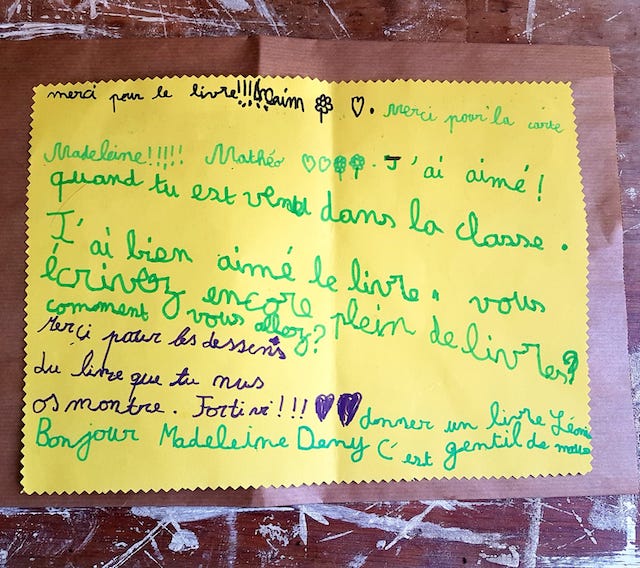 merci pour le livre!!!! Naïm
merci pour la carte
Madeleine!!!!! Mathéo J'ai aimé!
quand tu est venu dans la classe.
J'ai bien aimé le livre. vous
écrivez encore plein de livres?
comment vous allez?
Merçi pour les dessens
du livre que tu nus
os montre. Fortini!!!
donner un livre Léonie
Bonjour Madeleine Deny C'est gentil de nous